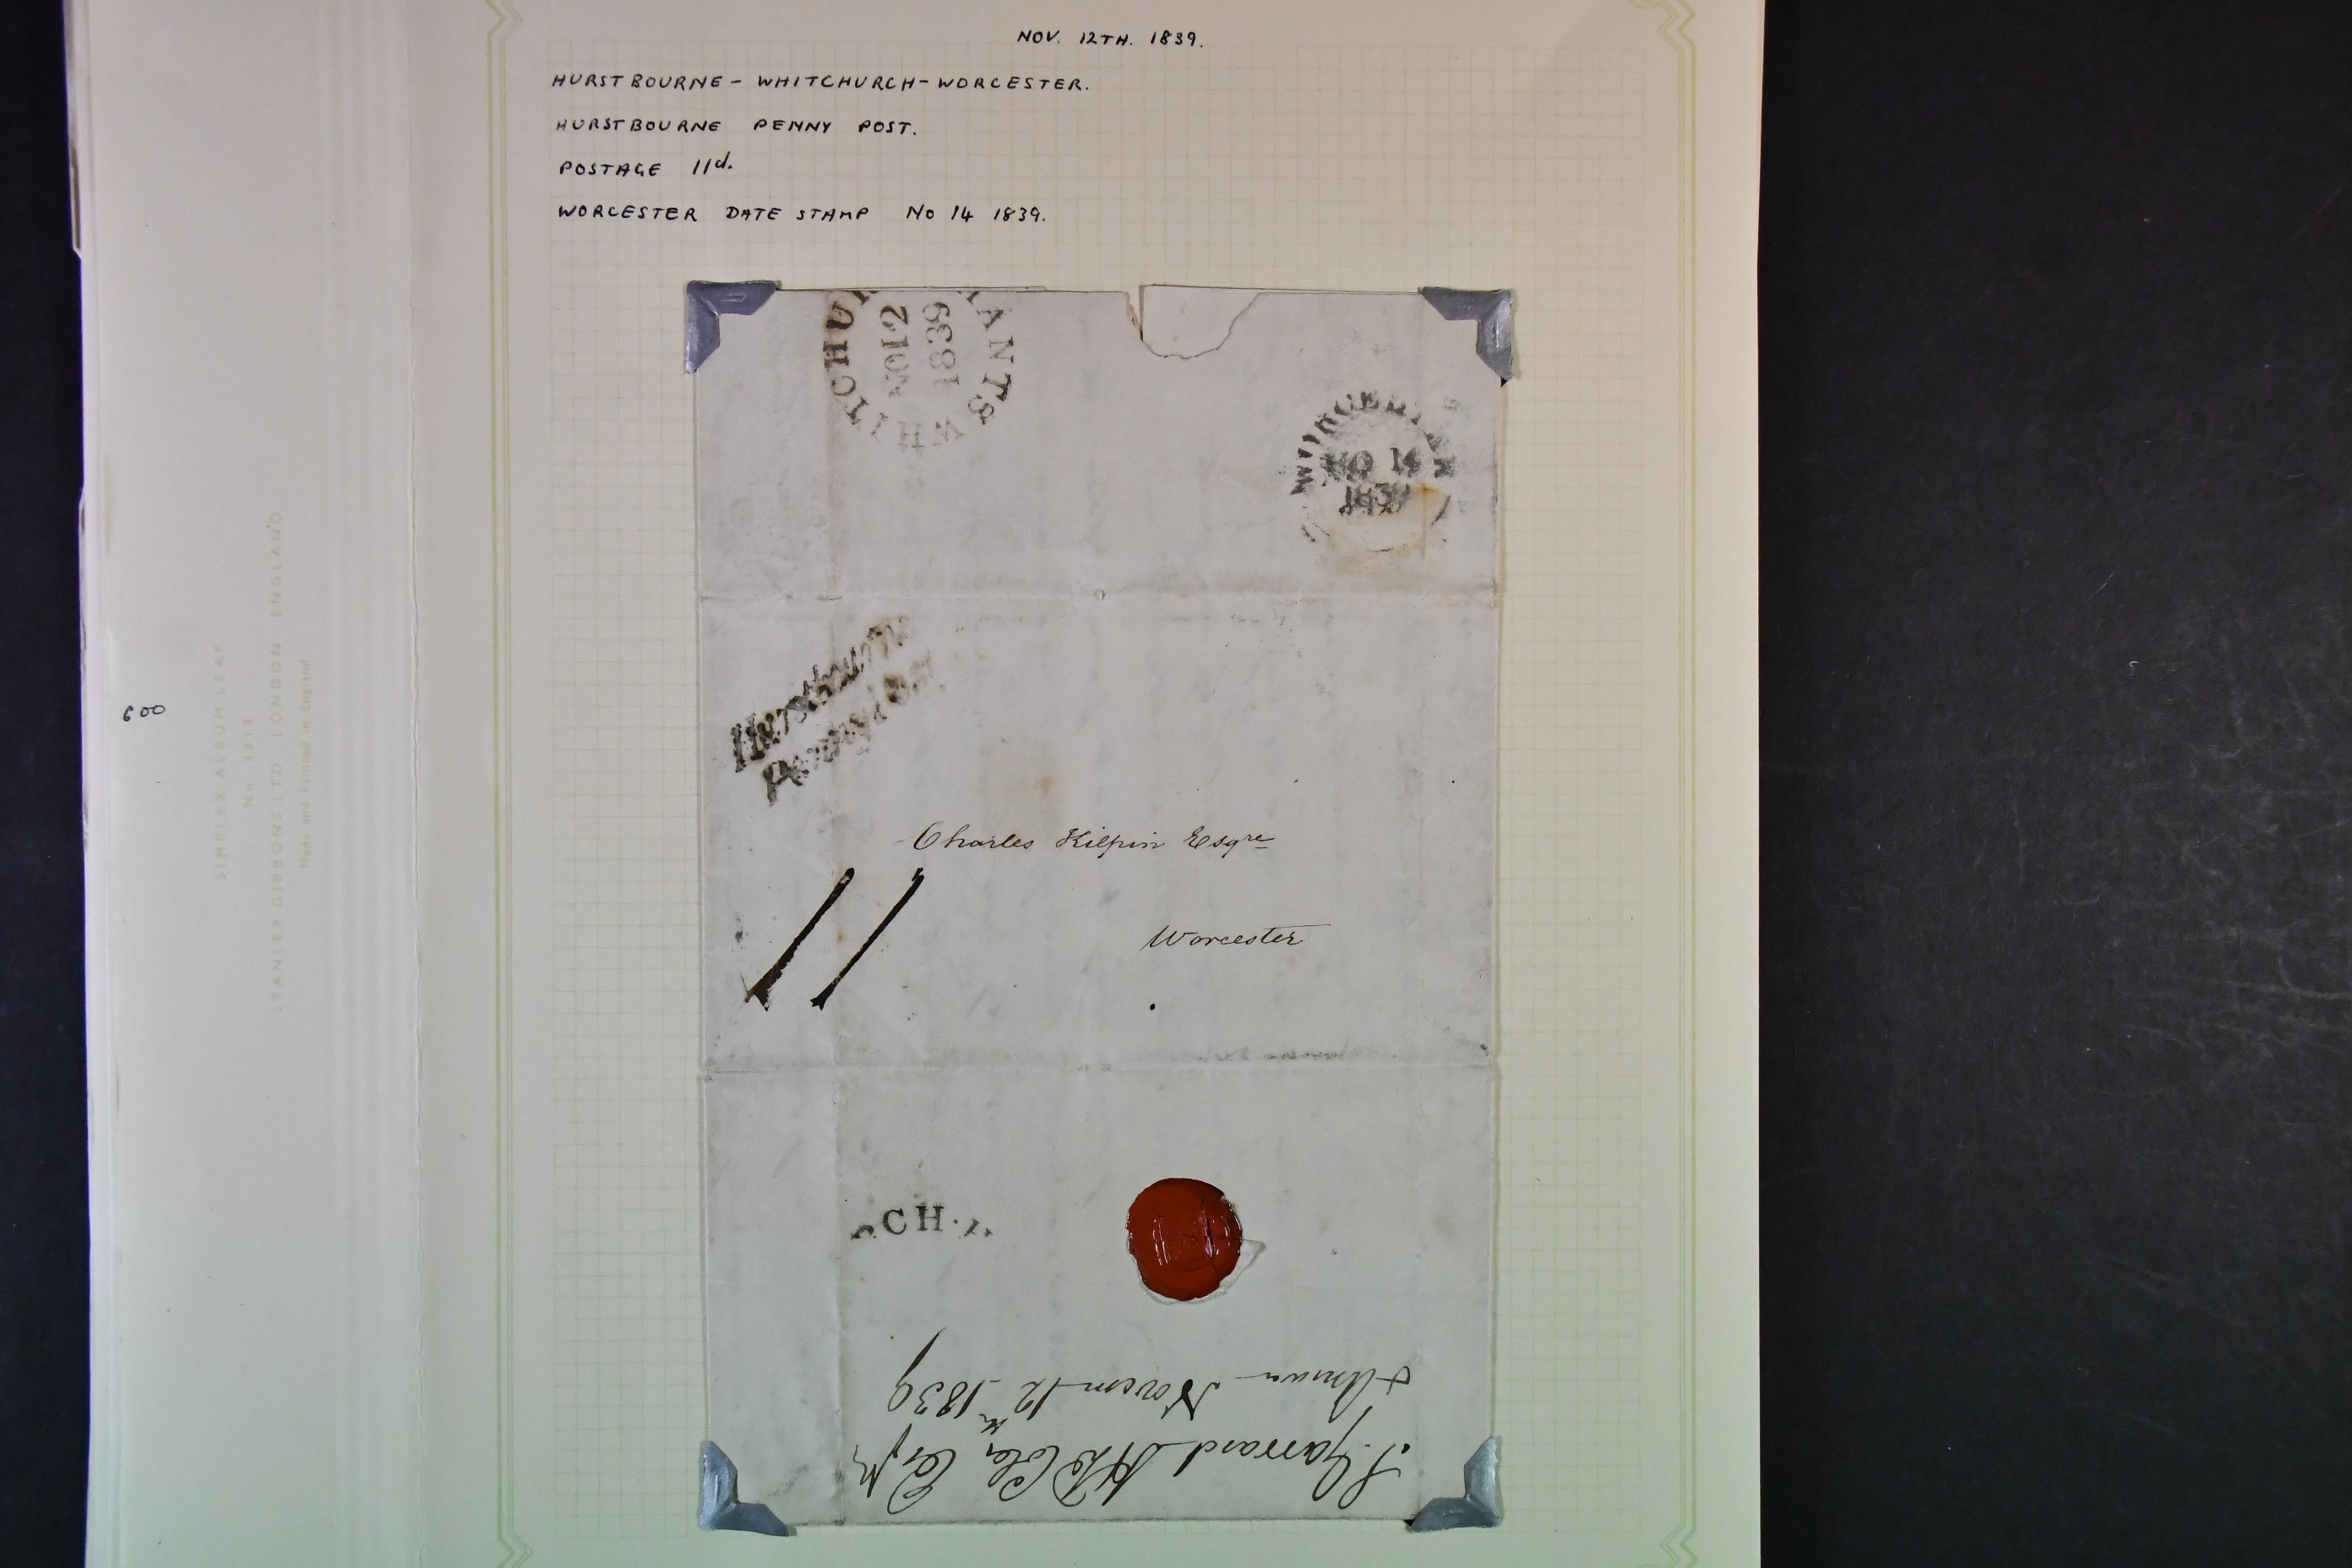 NOV. 12TH. 1839.
HURSTBOURNE - WHITCHURCH - WORCESTER.
HURSTBOURNE PENNY POST.
POSTAGE 11d.
WORCESTER DATE STAMP NO 14 1839.
WHITCHUR HANTS
NO12
1839
WORCESTER
NO 14
1839
Hurstbourn
Penny Post
Charles Kilpin Esqre
11
Worcester
RCH.H
Novem 12th 1839
Garrard
600
SIMPLEX ALBUM LEAF
No 3813
STANLEY GIBBONS LTD LONDON ENGLAND
Made and Printed in England